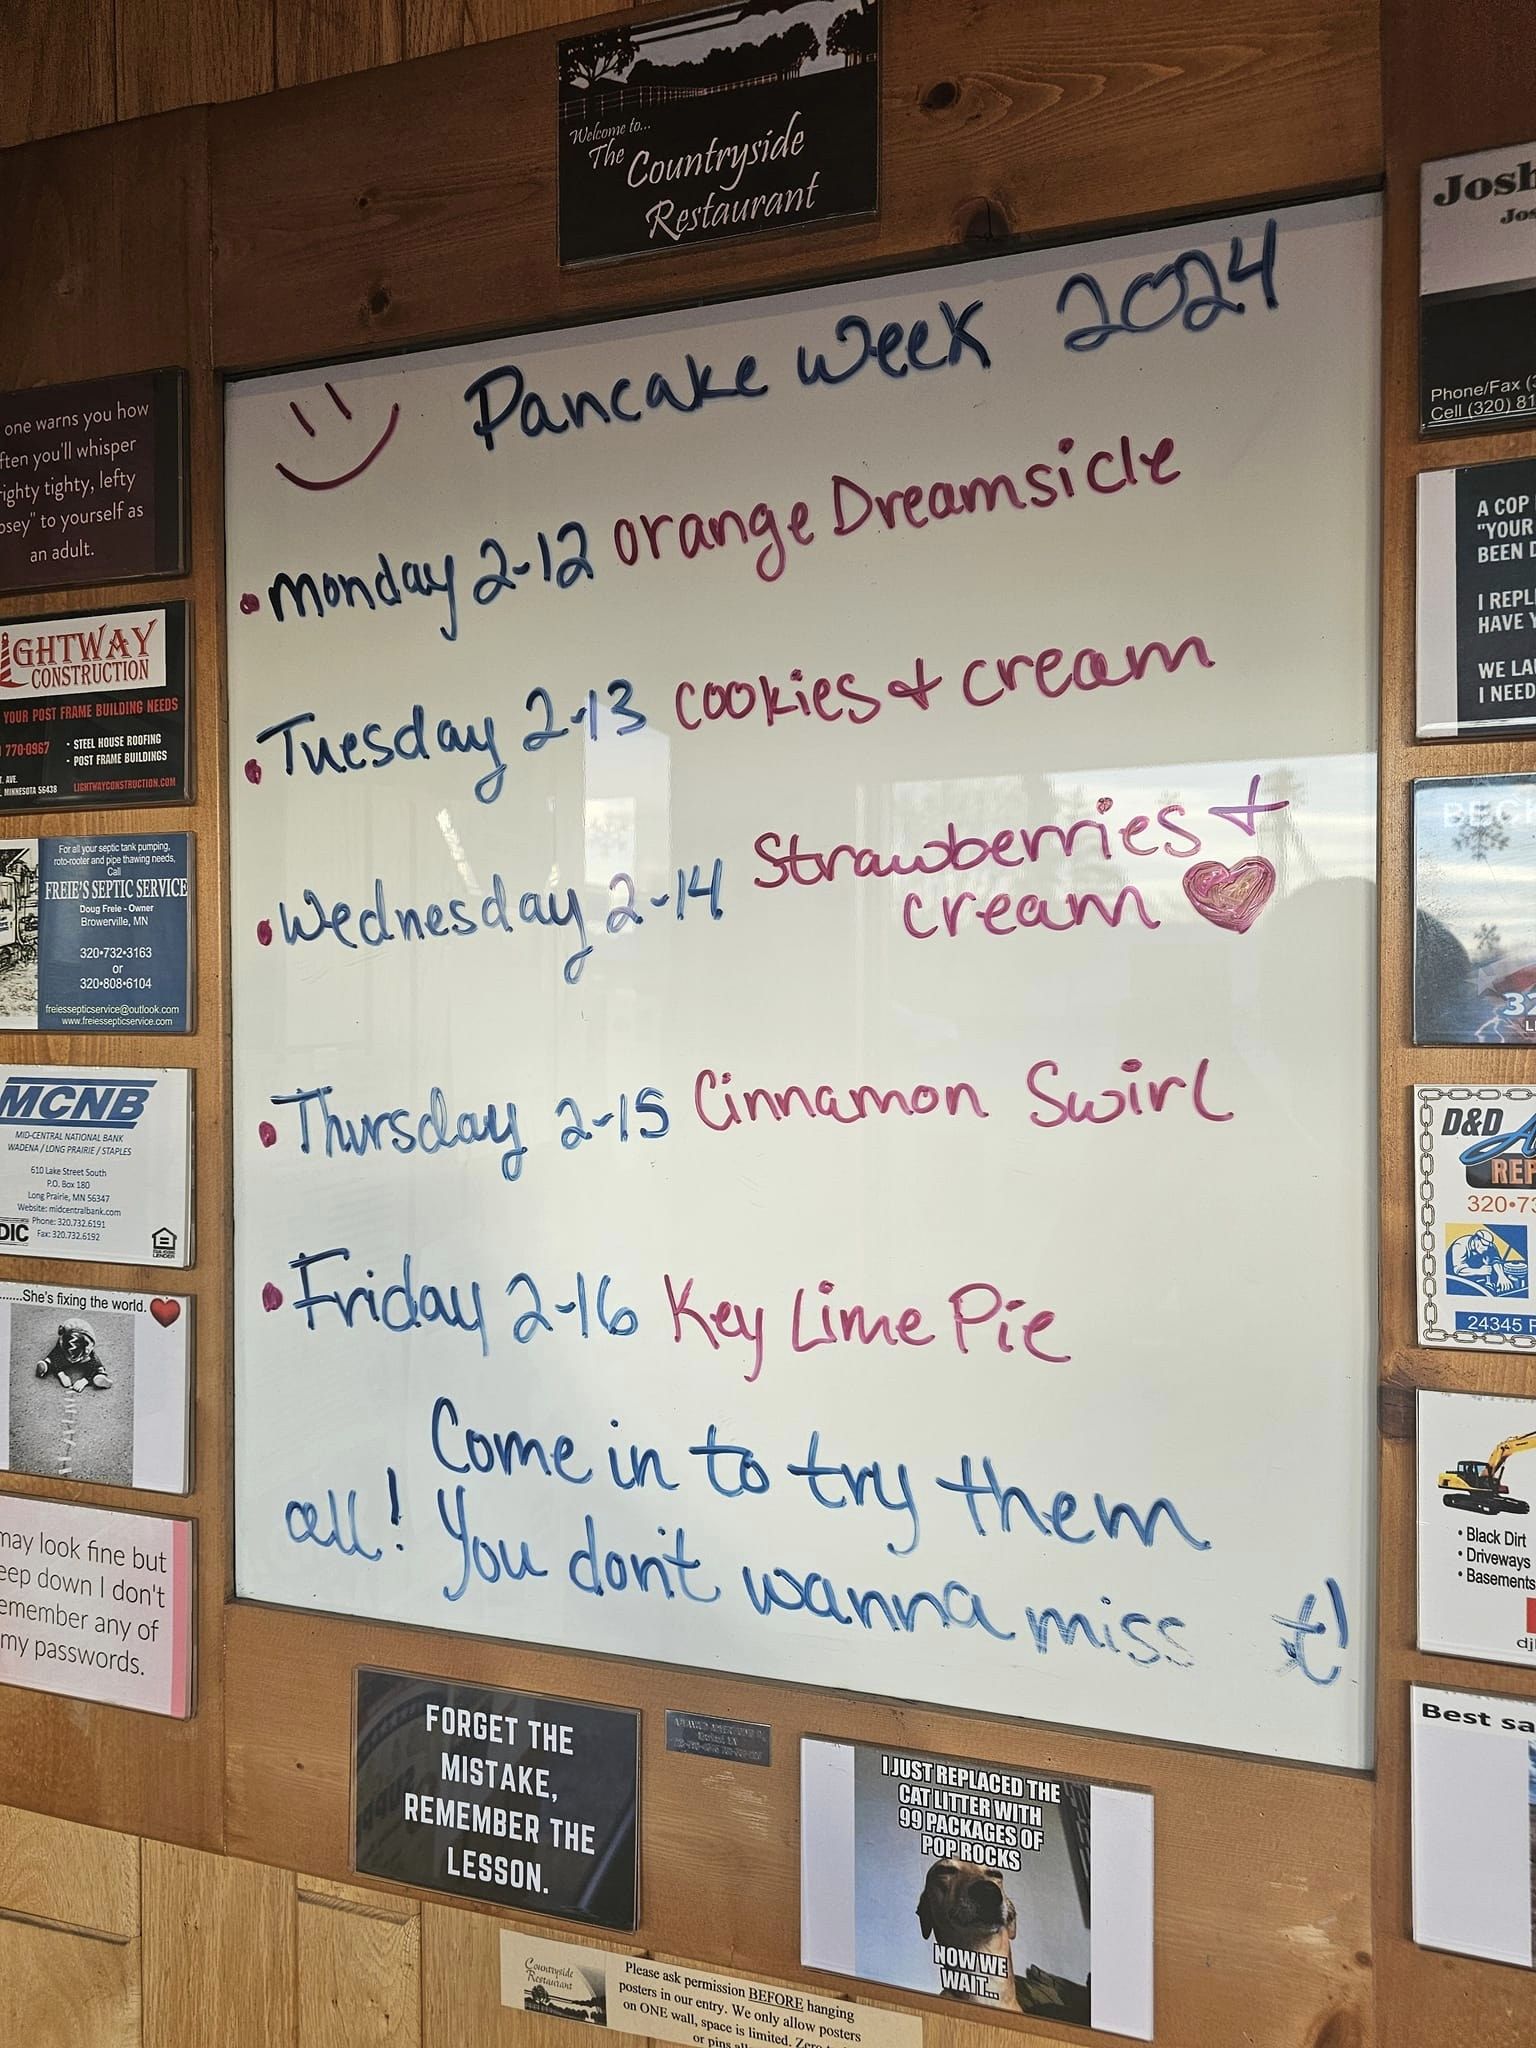 Welcome to...
The Countryside
Restaurant
Pancake week 2024
• Monday 2-12 orange Dreamsicle
• Tuesday 2-13 cookies & cream
• Wednesday 2-14 Strawberries +
cream
• Thursday 2-15 Cinnamon Swirl
• Friday 2-16 Key Lime Pie
Come in to try them
all! You don't wanna miss it!
one warns you how
you'll whisper
tighty, lefty
to yourself as
an adult.
CONSTRUCTION
YOUR POST FRAME BUILDING NEEDS
770-0967
• STEEL HOUSE ROOFING
• POST FRAME BUILDINGS
AVE.
MINNESOTA 56438
LIGHTWAYCONSTRUCTION.COM
For all your septic tank pumping,
roto-rooter and pipe thawing needs,
Call
FREIE'S SEPTIC SERVICE
Doug Freie - Owner
Browerville, MN
320•732•3163
or
320•808•6104
freiessepticservice@outlook.com
www.freiessepticservice.com
MCNB
MID-CENTRAL NATIONAL BANK
WADENA / LONG PRAIRIE / STAPLES
610 Lake Street South
P.O. Box 180
Long Prairie, MN 56347
Website: midcentralbank.com
Phone: 320.732.6191
Fax: 320.732.6192
.......She's fixing the world.
may look fine but
deep down I don't
remember any of
my passwords.
Josh
Phone/Fax (3
Cell (320) 81
A COP
"YOUR
BEEN D
I REPL
HAVE Y
WE LA
I NEED
BEC
32
D&D
REP
320•73
24345
• Black Dirt
• Driveways
• Basements
dj
Best sa
FORGET THE
MISTAKE,
REMEMBER THE
LESSON.
I JUST REPLACED THE
CAT LITTER WITH
99 PACKAGES OF
POP ROCKS
NOW WE
WAIT...
Countryside
Restaurant
Please ask permission BEFORE hanging
posters in our entry. We only allow posters
on ONE wall, space is limited. Zero
or pins